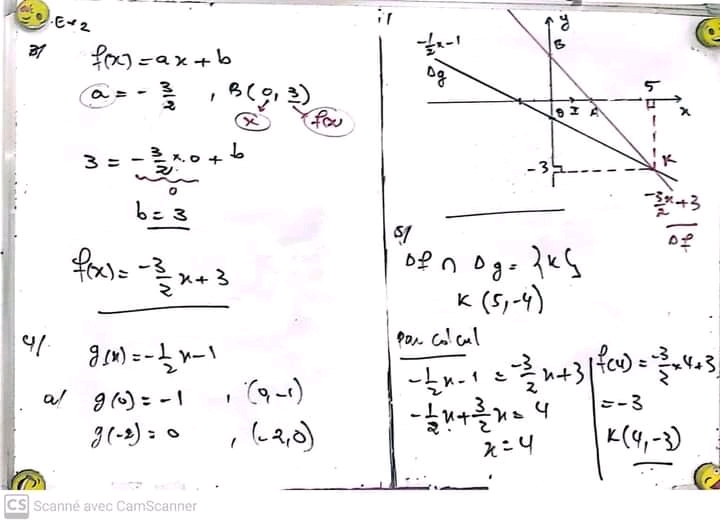 Ex 2
3/
f(x) = ax + b
a = - 3/2 , B(0, 3)
x f(x)
3 = - 3/2 x.0 + b
0
b = 3
f(x) = -3/2 x + 3
4/.
g(x) = -1/2 x - 1
a/ g(0) = -1 , (0,-1)
g(-2) = 0 , (-2,0)
y
-1/2x-1
B
Δg
5
I A x
K
-3
-3x/2+3
Δf
5/
Δf ∩ Δg = {K}
K (5,-4)
par calcul
-1/2 x - 1 = -3/2 x + 3
-1/2 x + 3/2 x = 4
x = 4
f(4) = -3/2 x 4 + 3
= -3
K(4,-3)
CS Scanné avec CamScanner